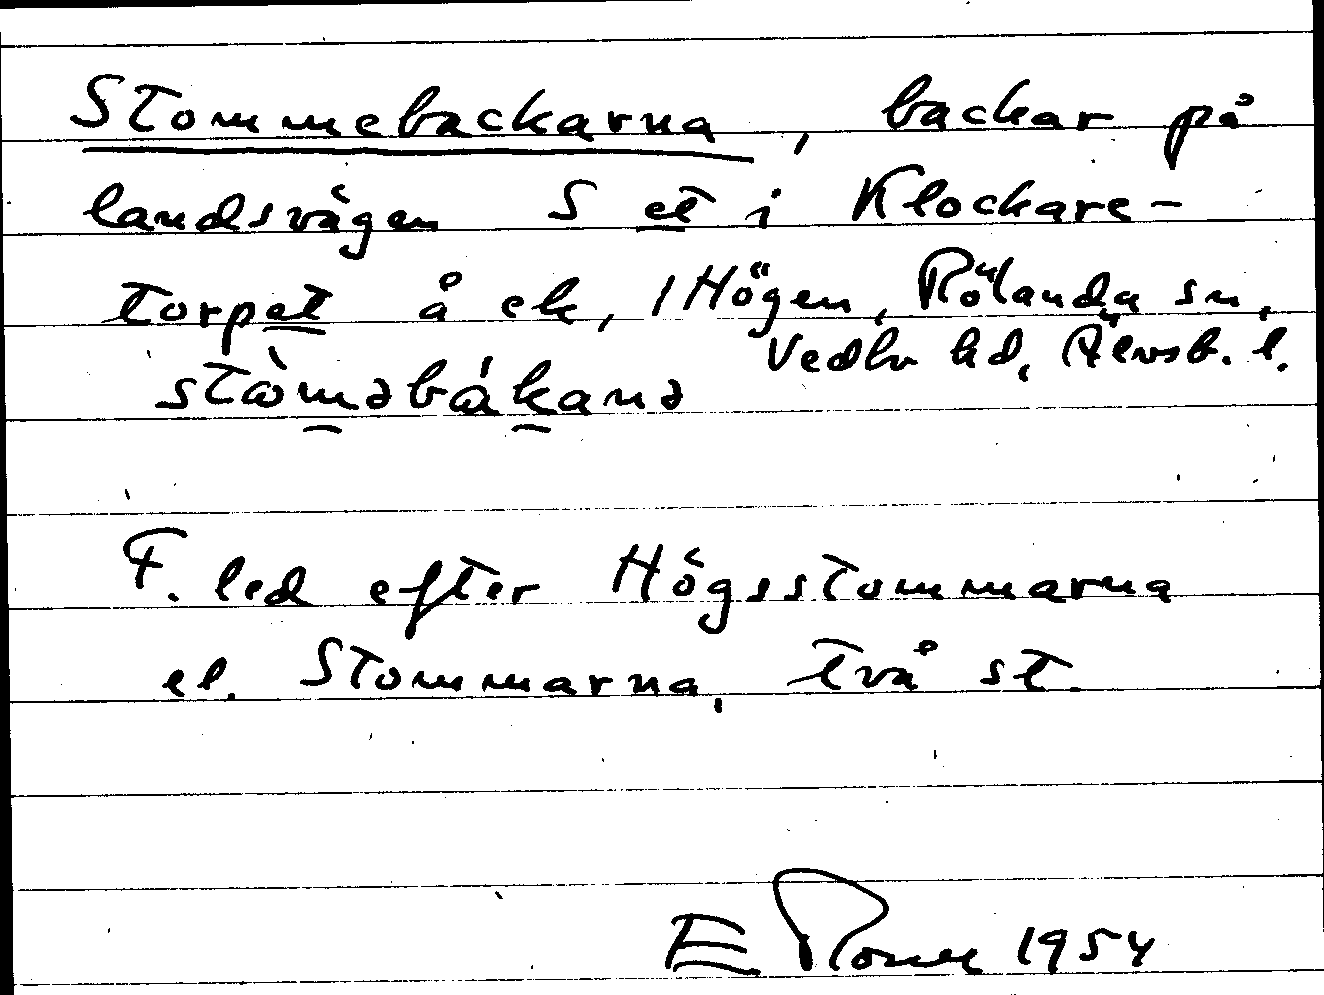 Stommebackarna, backar på
landsvägen S et i Klockare-
torpet å ek, 1 Högen, Rölanda sn,
Vedbo hd, Älvsb. l.
stòməbákanə
F. led efter Högsstommarna
el. Stommarna, två st.
E 1954